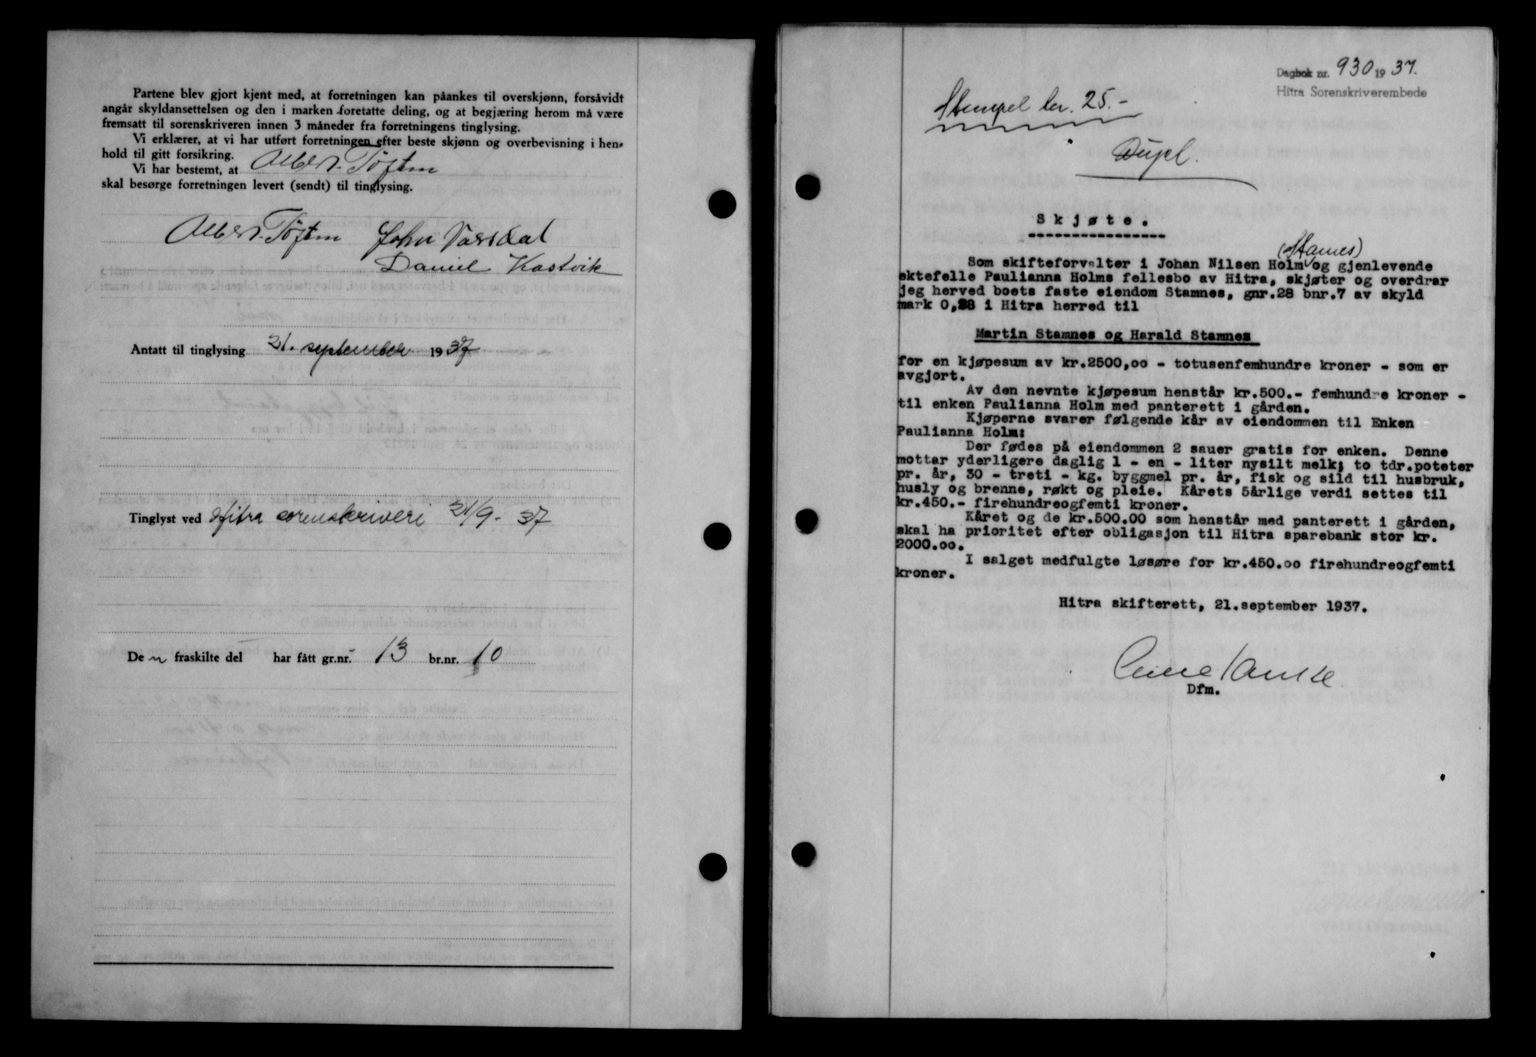 Partene blev gjort kjent med, at forretningen kan påankes til overskjønn, forsåvidt
angår skyldansettelsen og den i marken foretatte deling, og at begjæring herom må være
fremsatt til sorenskriveren innen 3 måneder fra forretningens tinglysing.
Vi erklærer, at vi har utført forretningen efter beste skjønn og overbevisning i hen-
hold til gitt forsikring.
Vi har bestemt, at Albert Tøften
skal besørge forretningen levert (sendt) til tinglysing.
Albert Tøften John Vassdal
Daniel Kastvik
Antatt til tinglysing 21. september 1937
Tinglyst ved Hitra sorenskriveri 21/9-37
De n fraskilte del har fått gr.nr. 13 br.nr. 10
Dagbok nr. 930 1937.
Hitra Sorenskriverembede
Stempel kr. 25.-
Dupl.
Skjøte.
(Stamnes)
Som skifteforvalter i Johan Nilsen Holm og gjenlevende
ektefelle Paulianna Holms fellesbo av Hitra, skjøter og overdrar
jeg herved boets faste eiendom Stamnes, gnr.28 bnr.7 av skyld
mark 0,28 i Hitra herred til
Martin Stamnes og Harald Stamnes
for en kjøpesum av kr.2500,oo - totusenfemhundre kroner - som er
avgjort.
Av den nevnte kjøpesum henstår kr.500.- femhundre kroner -
til enken Paulianna Holm med panterett i gården.
Kjøperne svarer følgende kår av eiendommen til Enken
Paulianna Holm:
Der fødes på eiendommen 2 sauer gratis for enken. Denne
mottar yderligere daglig 1 - en - liter nysilt melk; to tdr.poteter
pr. år, 30 - treti - kg. byggmel pr. år, fisk og sild til husbruk,
husly og brenne, røkt og pleie. Kårets 5årlige verdi settes til
kr.450.- firehundreogfemti kroner.
Kåret og de kr.500.00 som henstår med panterett i gården,
skal ha prioritet efter obligasjon til Hitra sparebank stor kr.
2000.oo.
I salget medfulgte løsøre for kr.450.oo firehundreogfemti
kroner.
Hitra skifterett, 21.september 1937.
Dfm.